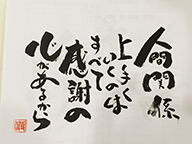 人間関係
上手く
いくのは
すべて
感謝の
心があるから